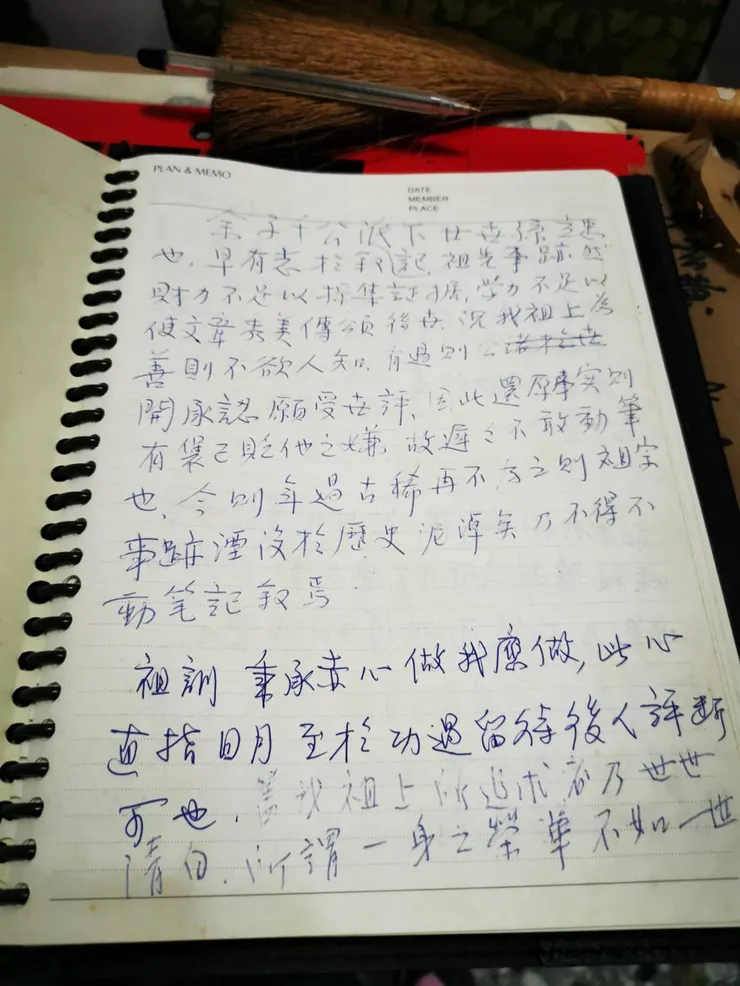 PLAN & MEMO
DATE
MEMBER
PLACE
余子千公派下廿世孫
也，早有志於叙記，祖先事跡，然
財力不足以採集証據，學力不足以
使文章秀美傳頌後世，況我祖上為
善則不欲人知，有過則公
開承認，願受世評，因此還原事實則
有褒己貶他之嫌，故遲之不敢動筆
也，今則年過古稀再不為之則祖宗
事跡湮沒於歷史泥淖矣乃不得不
動笔記叙焉
祖訓 秉承赤心做我應做，此心
直指日月至於功過留待後人評断
可也，我祖上所追求者乃世世
清白，所謂一身之榮華不如一世